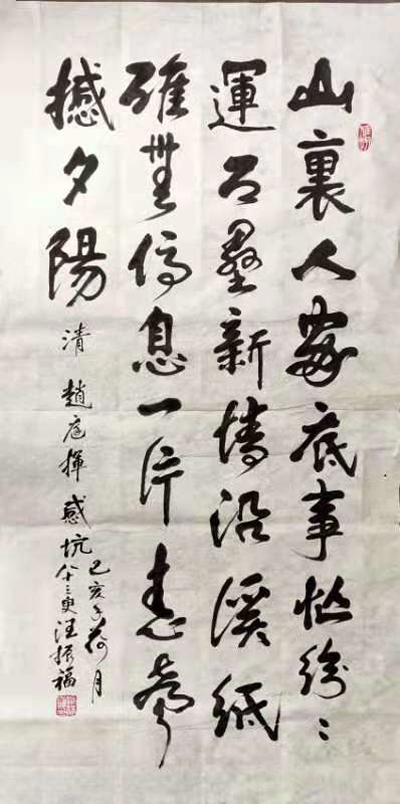 山裏人家底事忙紛〻
運石壘新墻沿溪紙
碓無停息一片舂聲
撼夕陽 清 趙廷揮 感坑
己亥年荷月
八十三叟汪振福